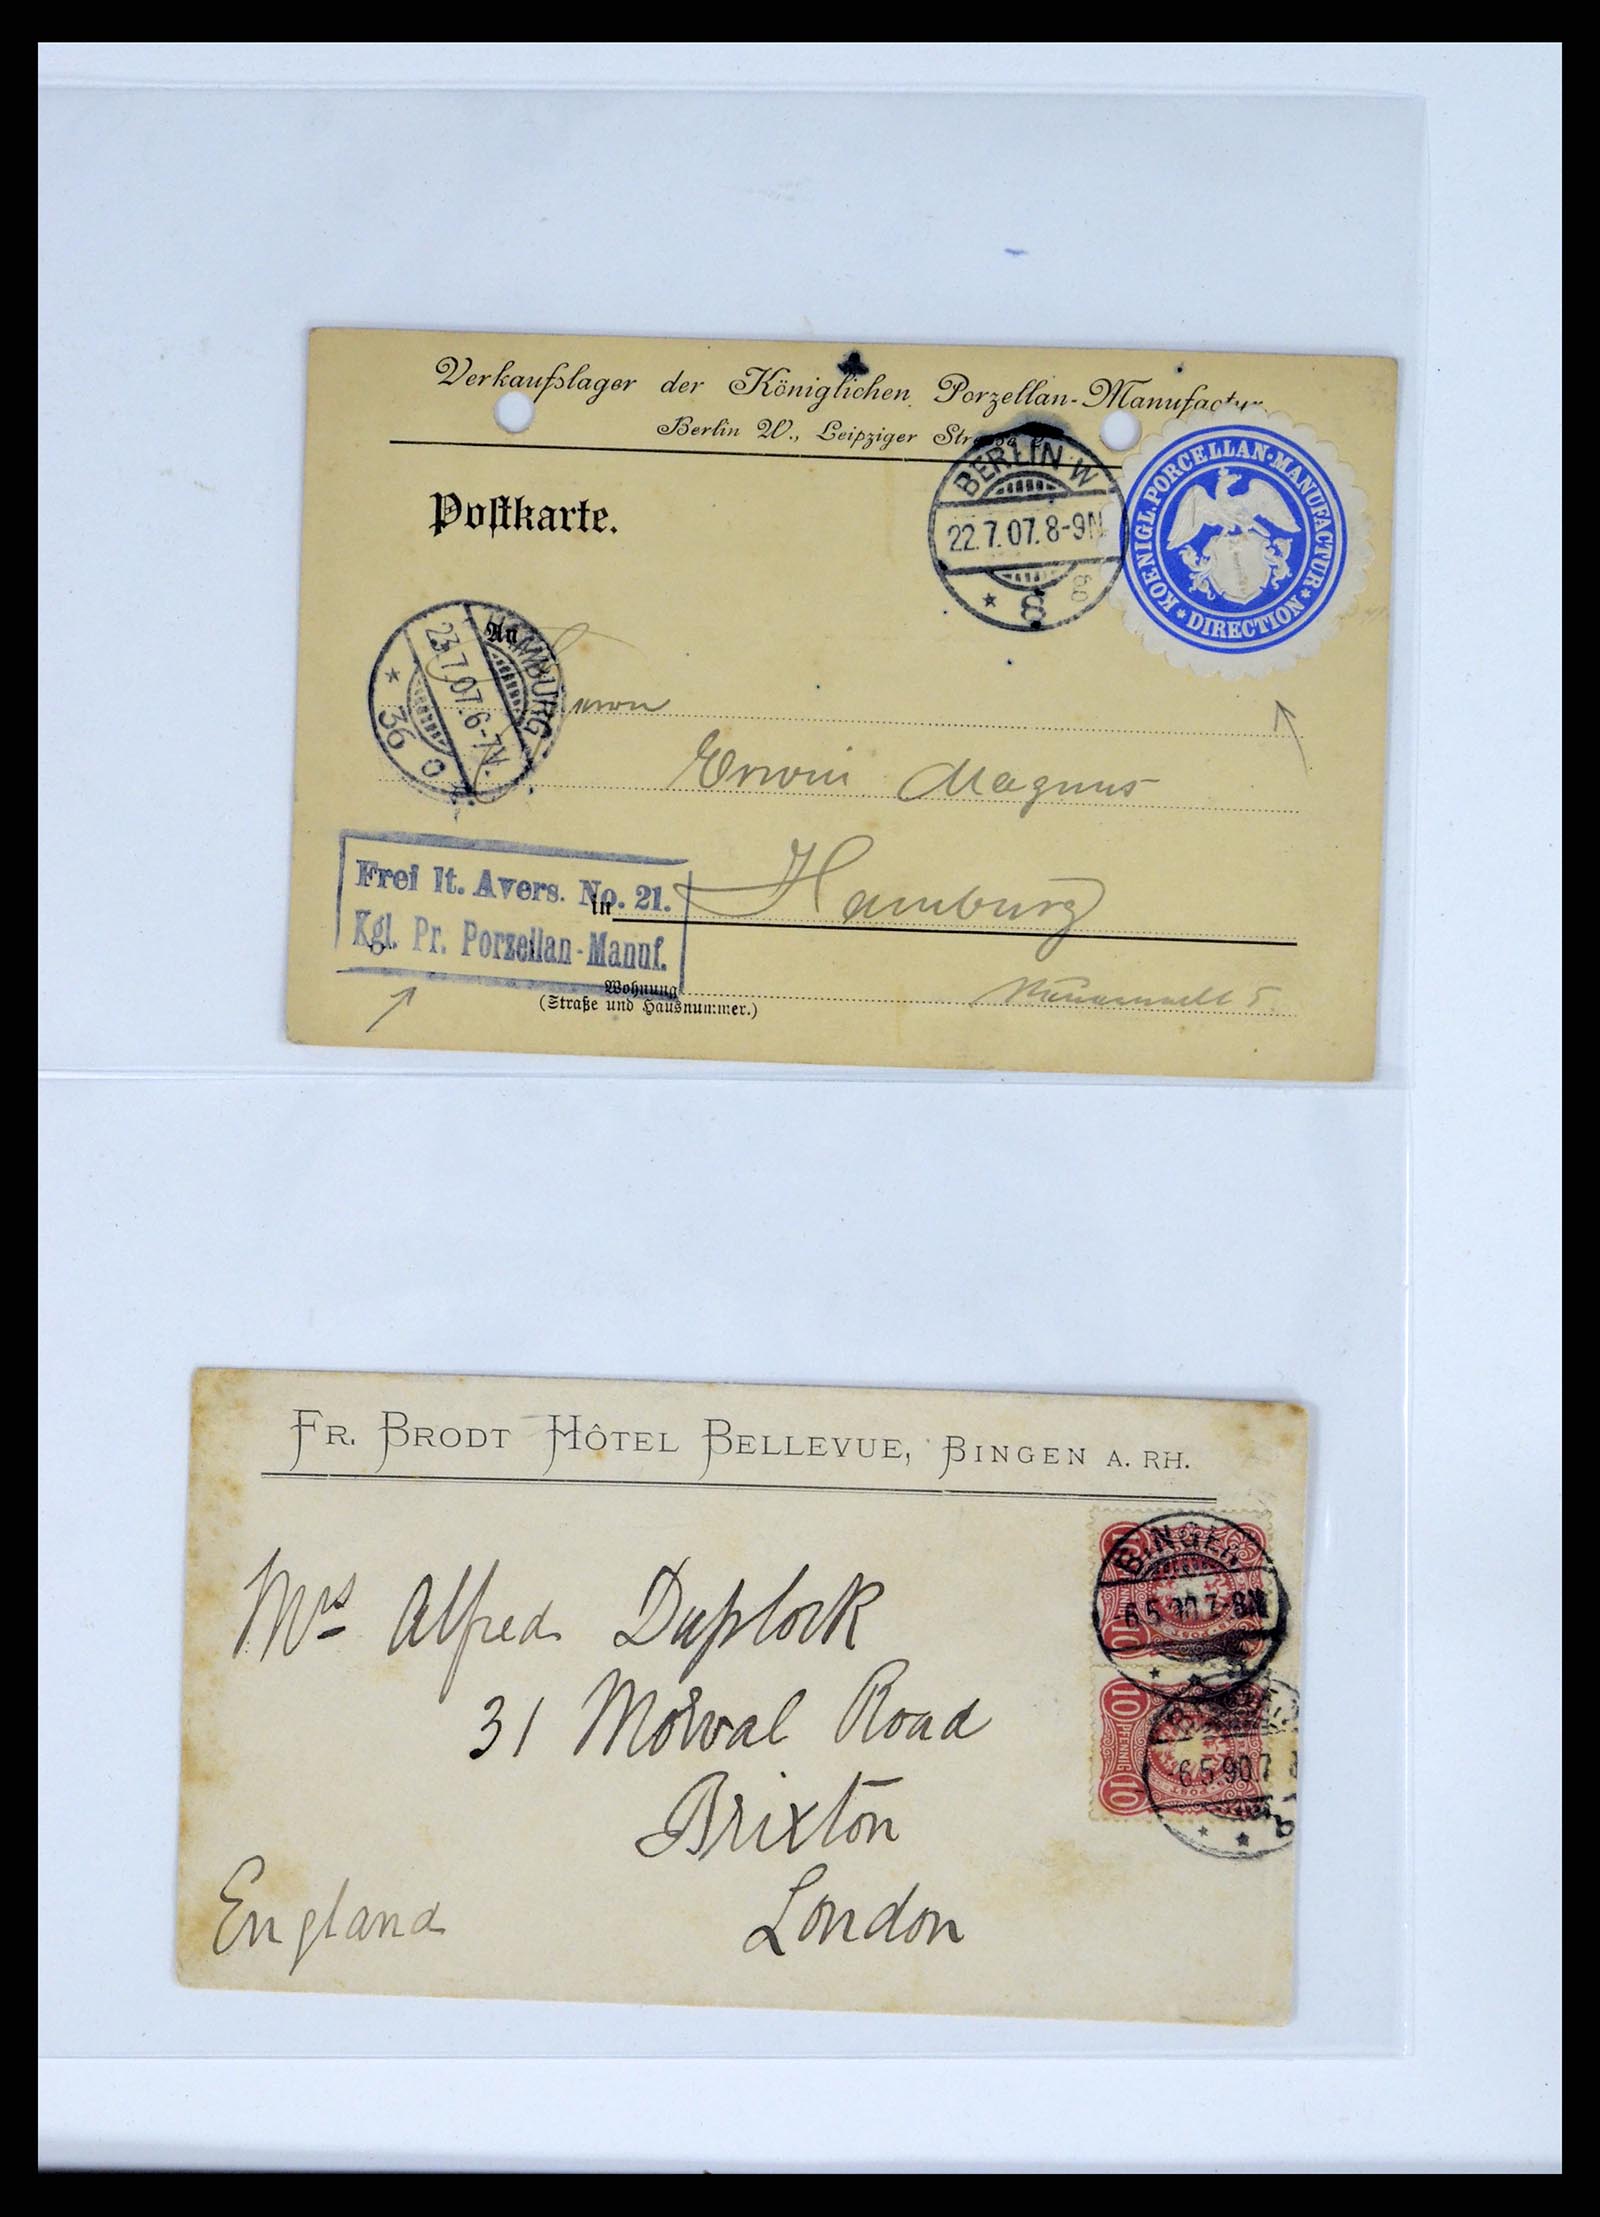 Verkaufslager der Königlichen Porzellan-Manufactur
Berlin W., Leipziger Straße 2
KOENIGL. PORCELLAN-MANUFACTUR
* DIRECTION *
BERLIN W
22.7.07.8-9N.
* 8 *
Postkarte.
An
HAMBURG
23.7.07.6-7V.
* 36 c
Erwin Magnus
in Hamburg
Frei lt. Avers. No. 21.
Kgl. Pr. Porzellan-Manuf.
Wohnung
(Straße und Hausnummer.)
FR. BRODT HÔTEL BELLEVUE, BINGEN A. RH.
Mrs Alfred Duplock
31 Morval Road
Brixton
London
England
BINGEN
6.5.90.7-8N
10 PFENNIG 10
6.5.90.7
10 PFENNIG 10